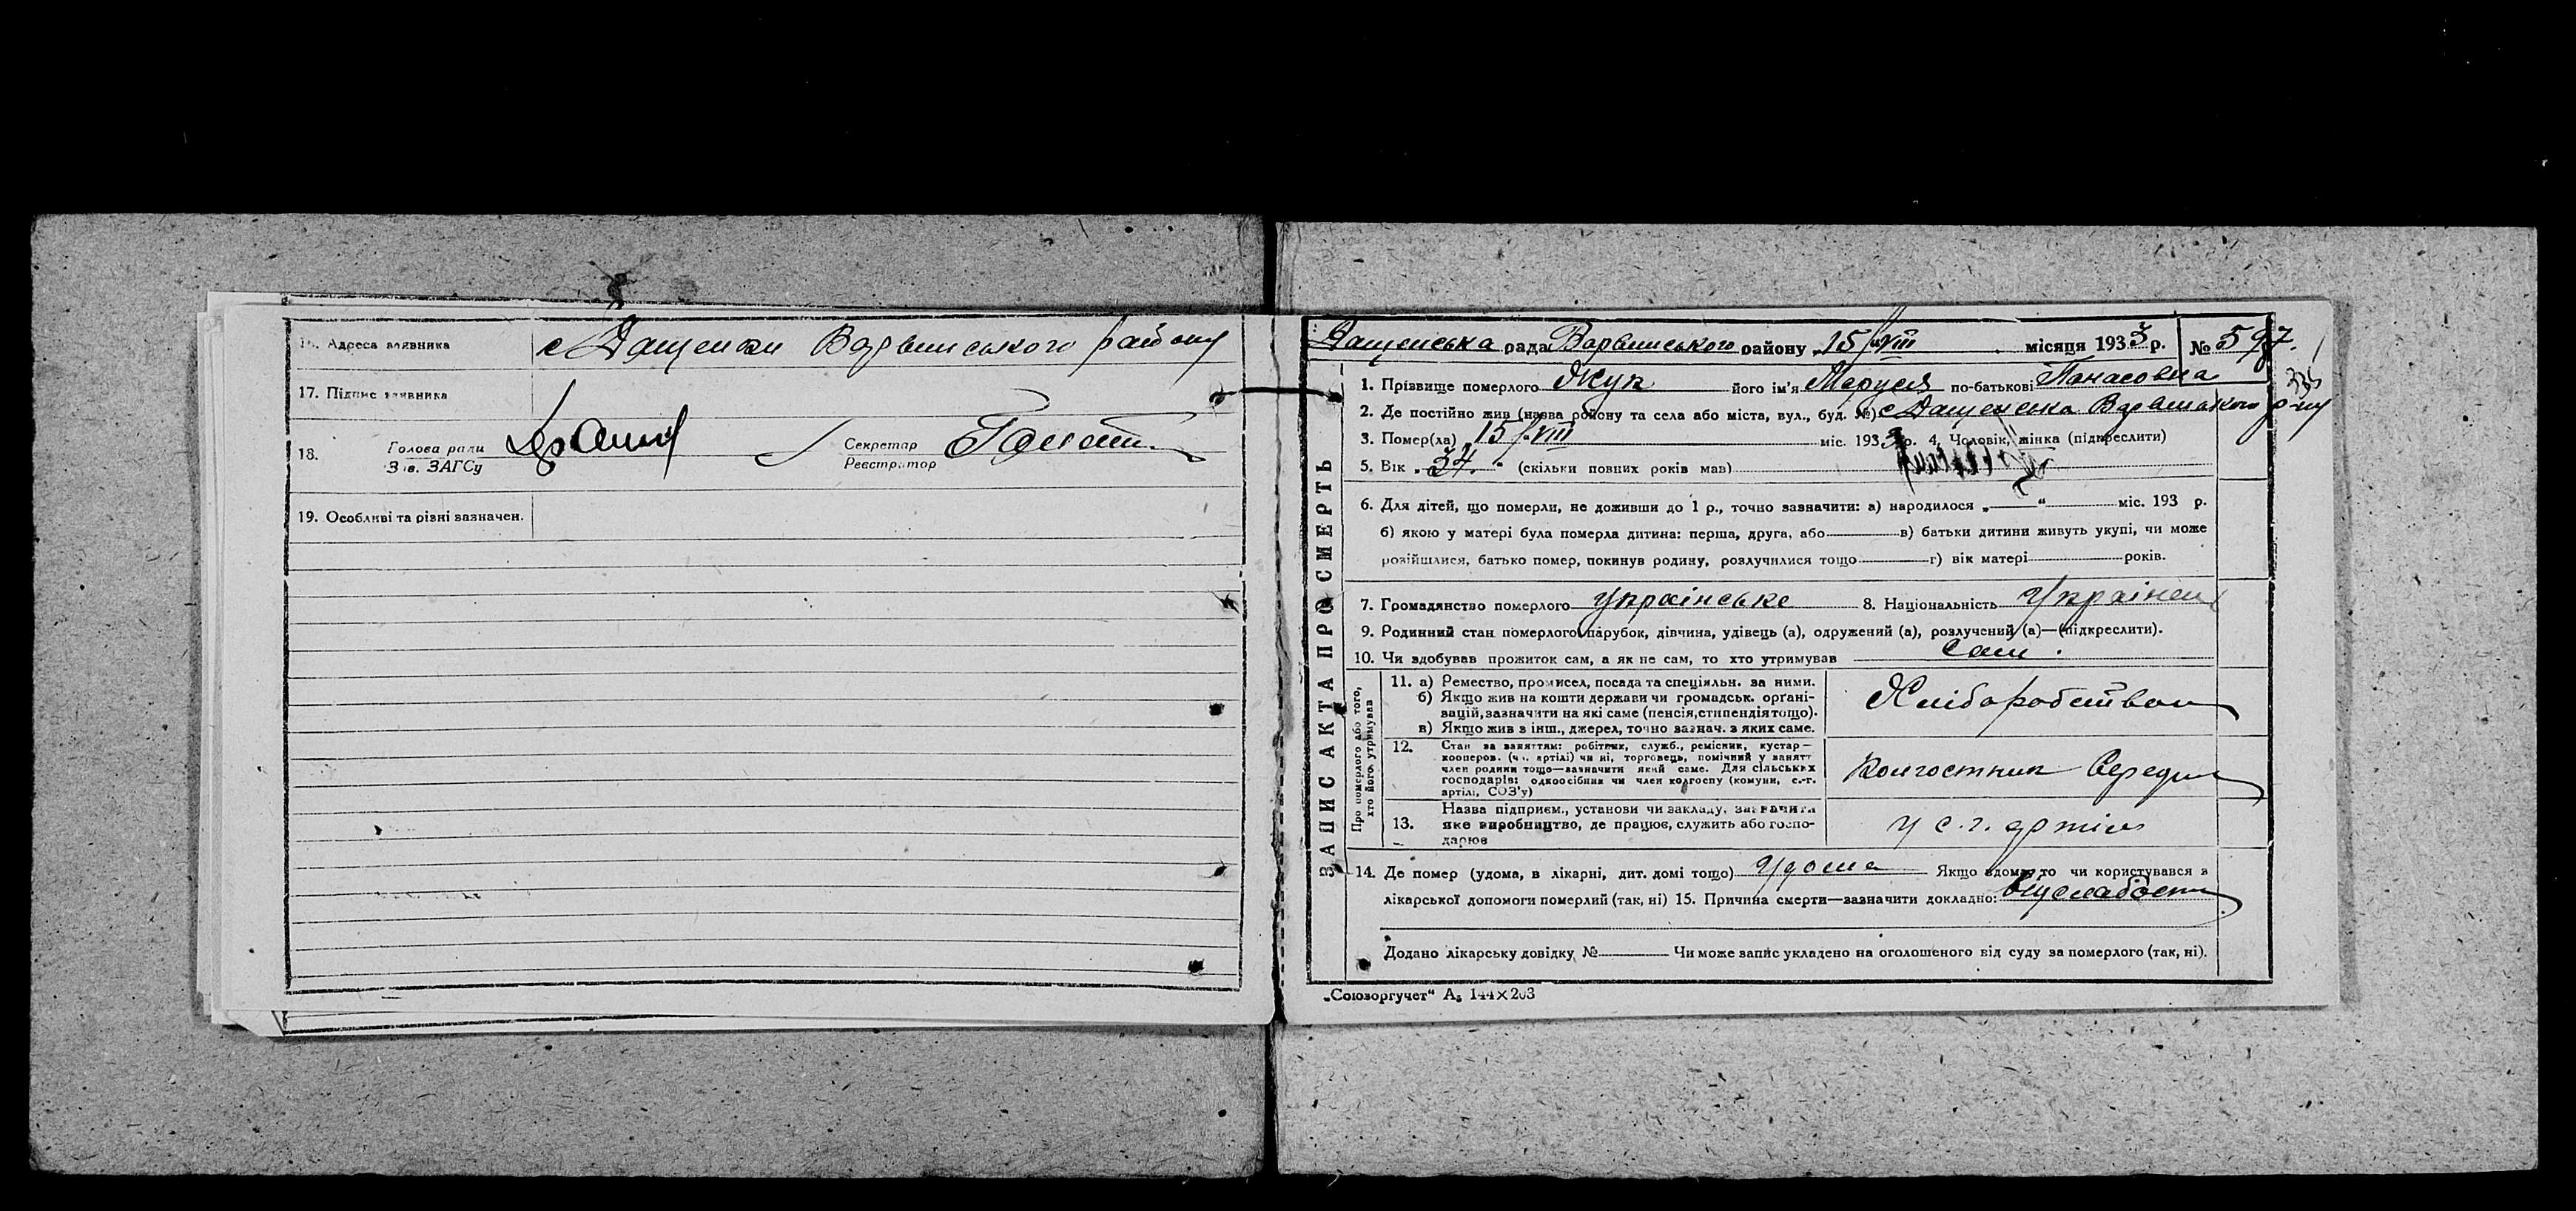 16. Адреса заявника с Дащенки Варвинського району
17. Підпис заявника
18. Голова ради Секретар
Зав. ЗАГСу Реєстратор
19. Особливі та різні зазначен.
Дащенська рада Варвинського району „15/VIII місяця 1933 р. № 597.
1. Прізвище померлого Жук його ім'я Маруся по-батькові Панасовна
335
2. Де постійно жив (назва району та села або міста, вул., буд. №) с Дащенська Варвинського р-ну
3. Помер(ла) „15/VIII міс. 1933 р. 4. Чоловік, жінка (підкреслити)
5. Вік „34." (скільки повних років мав)
6. Для дітей, що померли, не доживши до 1 р., точно зазначити: а) народилося „ “ міс. 193 р.
б) якою у матері була померла дитина: перша, друга, або в) батьки дитини живуть укупі, чи може
розійшлися, батько помер, покинув родину, розлучилися тощо г) вік матері років.
7. Громадянство померлого українське 8. Національність Українец
9. Родинний стан померлого парубок, дівчина, удівець (а), одружений (а), розлучений (а)—(підкреслити).
10. Чи здобував прожиток сам, а як не сам, то хто утримував Сам.
ЗАПИС АКТА ПРО СМЕРТЬ
Про померлого або того,
хто його утримував
11. а) Ремество, промисел, посада та спеціяльн. за ними.
б) Якщо жив на кошти держави чи громадськ. орґані-
зацій, зазначити на які саме (пенсія, стипендія тощо).
в) Якщо жив з інш., джерел, точно зазнач. з яких саме.
Хліборобством
12. Стан за заняттям: робітник, служб., ремісник, кустар—
кооперов. (чл. артілі) чи ні, торговець, помічний у занятт
член родини тощо—зазначити який саме. Для сільських
господарів: одноосібник чи член колгоспу (комуни, с.-г.
артілі, СОЗ'у)
Колгоспник Середняк
13. Назва підприєм., установи чи закладу, зазначити
яке виробництво, де працює, служить або госпо-
дарює
у с.г. артілі
14. Де помер (удома, в лікарні, дит. домі тощо) Удома Якщо вдома, то чи користувався з
лікарської допомоги померлий (так, ні) 15. Причина смерти—зазначити докладно:
Додано лікарську довідку № Чи може запис укладено на оголошеного від суду за померлого (так, ні).
„Союзоргучет“ А₅ 144×203